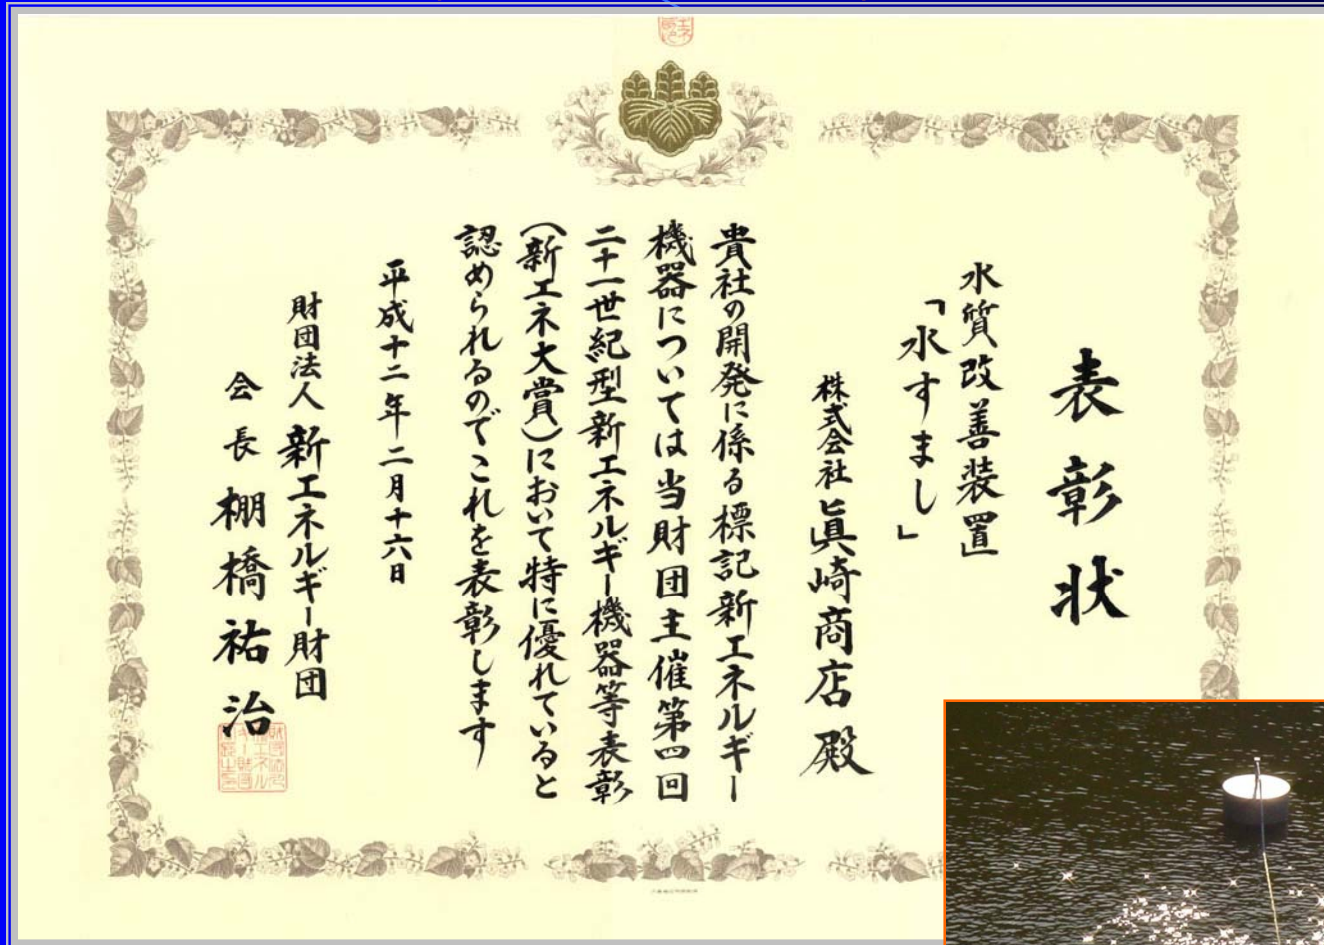 表彰状
水質改善装置
「水すまし」
株式会社眞崎商店殿
貴社の開発に係る標記新エネルギー
機器については当財団主催第四回
二十一世紀型新エネルギー機器等表彰
(新エネ大賞)において特に優れていると
認められるのでこれを表彰します
平成十二年二月十六日
財団法人新エネルギー財団
会長棚橋祐治